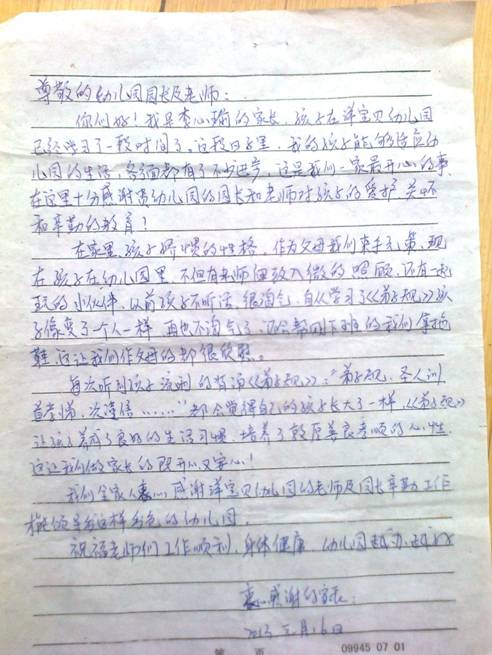 尊敬的幼儿园园长及老师：
你们好！我是李心瑜的家长，孩子在洋宝贝幼儿园
已经学习了一段时间了。这段日子里，我的孩子能够适应幼
儿园的生活，各方面都有了不少进步，这是我们一家最开心的事，
在这里十分感谢贵幼儿园的园长和老师对孩子的爱护、关怀
和辛勤的教育！
在家里，孩子娇惯的性格，作为父母我们束手无策，现
在孩子在幼儿园里，不但有老师细致入微的照顾，还有一起
玩的小伙伴，以前孩子不听话，很淘气，自从学习了《弟子规》孩
子像变了个人一样，再也不淘气了，还会帮刚下班的我们拿拖
鞋，这让我们作父母的都很欣慰。
每次听到孩子流利的背诵《弟子规》："弟子规，圣人训
首孝悌，次谨信……"都会觉得自己的孩子长大了一样，《弟子规》
让孩子养成了良好的生活习惯，培养了敦厚善良孝顺的心性，
这让我们做家长的既开心又安心！
我们全家人衷心感谢洋宝贝幼儿园的老师及园长辛勤工作
才能领导出这样出色的幼儿园。
祝福老师们工作顺利，身体健康，幼儿园越办越
衷心感谢的家长：
2013 月16日
第 页 09945 07 01